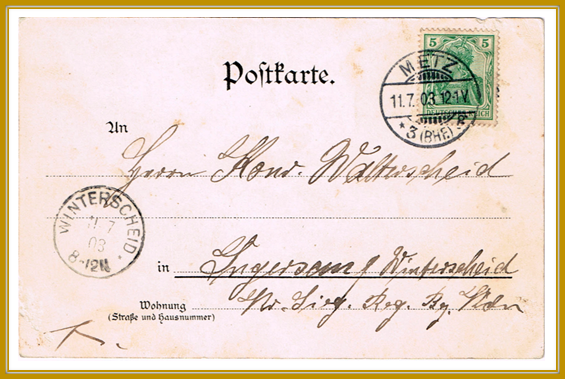 5 5
DEUTSCHES REICH
METZ
11.7.03.12-1V
* 3 (BHF.) *
Postkarte.
An
Herrn Konr. Walterscheid
WINTERSCHEID
11 7
03
8-12N
in
Winterscheid
Wohnung
(Straße und Hausnummer)
Kr. Sieg. Reg. Bz. Köln